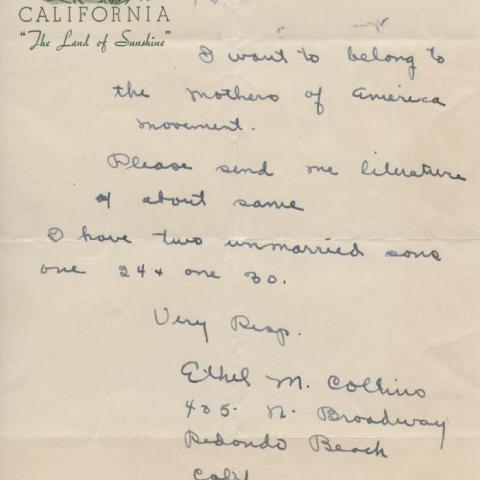 CALIFORNIA
"The Land of Sunshine"
I want to belong to
the Mothers of America
movement.
Please send me literature
about same
I have two unmarried sons
one 24 & one 30.
Very Resp.
Ethel M. Collins
405 N. Broadway
Redondo Beach
Calif